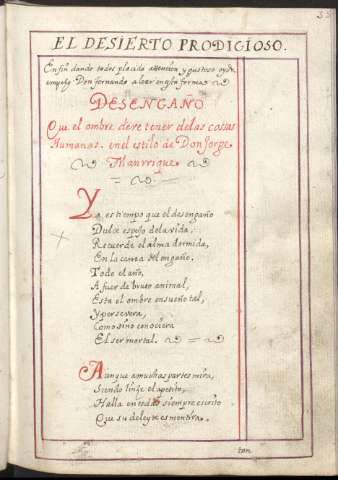 55
EL DESIERTO PRODIGIOSO.
En fin dando todos placida attencion, y gustoso oydo
empeço Don fernando a leer en esta forma
DESENGAÑO
Que el ombre deve tener de las cossas
Humanas. en el estilo de Don Jorge
Manrrique.
Ya es tiempo que el desengaño
Dulce espejo de la vida,
Recuerde el alma dormida,
En la cama del engaño,
Todo el año,
A fuer de bruto animal,
Esta el ombre en sueño tal,
Y persevera,
Como si no conociera
El ser mortal.
Aunque a muchas partes mira,
Siendo linze el apetito,
Halla en todas siempre escrito
Que su deleyte es mentira.
tan